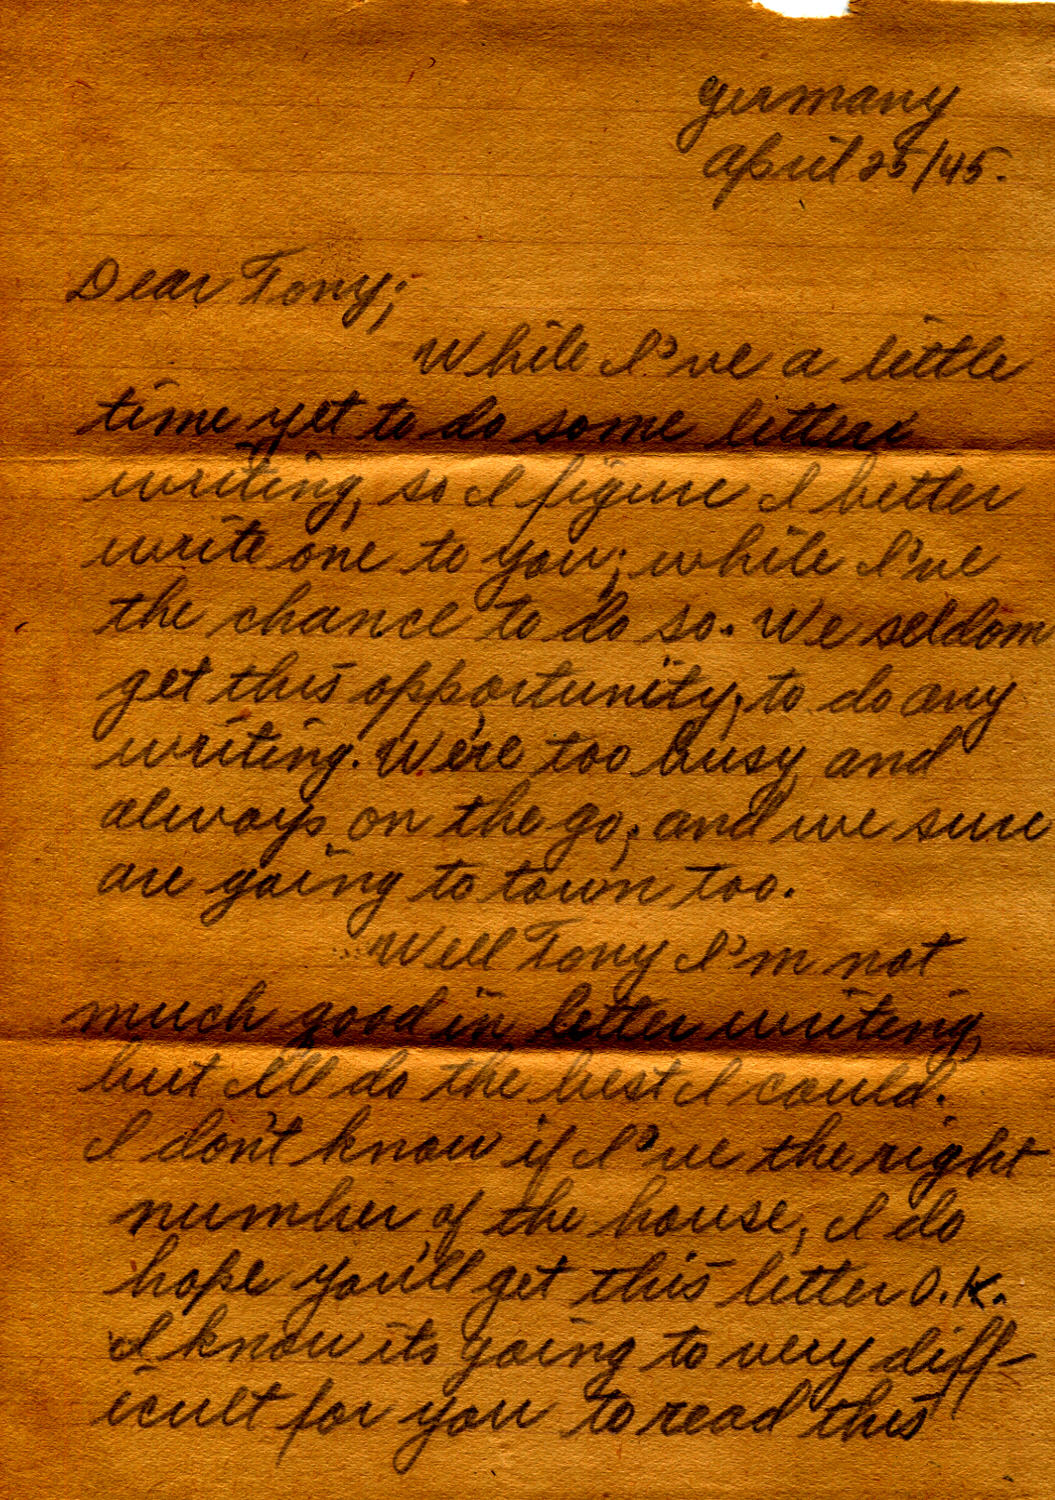 Germany
April 25/45.
Dear Tony;
While I've a little
time yet to do some letter
writing, so I figure I better
write one to you; while I've
the chance to do so. We seldom
get this opportunity, to do any
writing. We're too busy and
always on the go; and we sure
are going to town too.
Well Tony I'm not
much good in letter writing,
but I'll do the best I could.
I don't know if I've the right
number of the house, I do
hope you'll get this letter O.K.
I know its going to very diff-
icult for you to read this